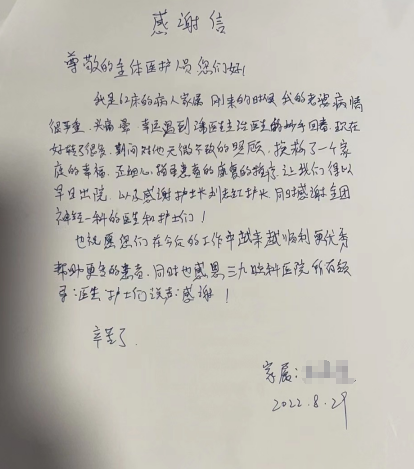 感谢信
尊敬的全体医护人员您们好!
我是12床的病人家属 刚来的时候 我的老婆病情
很严重、头痛晕 幸运遇到 医生主治医生的妙手回春, 现在
好转了很多, 期间对他无微不致的照顾, 挽救了一个家
庭的幸福, 还细心 患者的康复的 让我们得以
早日出院, 以及感谢护士长 护长 同时感谢全国
神经一科的医生和护士们!
也祝愿您们在今后的工作中越来越顺利更优秀
帮助更多的患者, 同时也感恩三九脑科医院所有领
导: 医生 护士们说声: 感谢!
辛苦了
家属:
2022.8.29